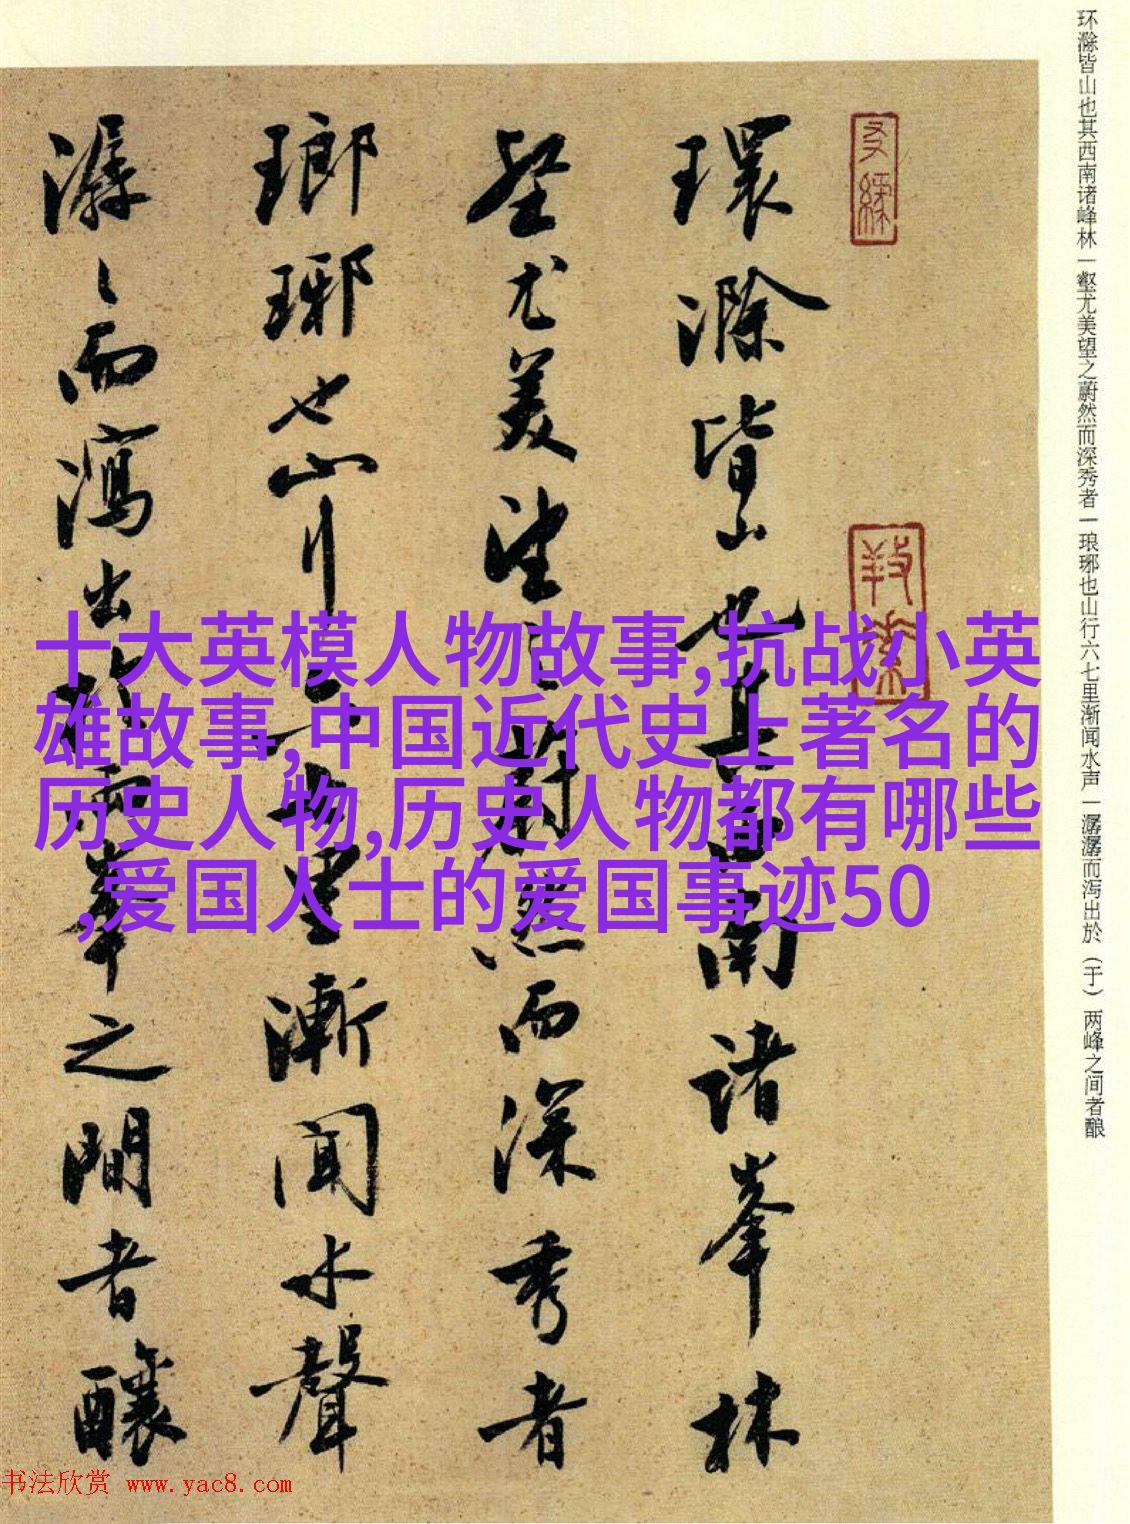 环滁皆山也其西南诸峰林一壑尤美望之蔚然而深秀者一琅琊也山行六七里渐闻水声一潺潺而泻出於（于）两峰之间者酿
環滁皆山也其西南諸峯林
壑尤美望之蔚然而深秀者
瑯琊也山行六七里漸聞水聲
潺々而瀉出於兩峯之間者釀
十大英模人物故事,抗战小英
雄故事,中国近代史上著名的
历史人物,历史人物都有哪些
,爱国人士的爱国事迹50
书法欣赏 www.yac8.com